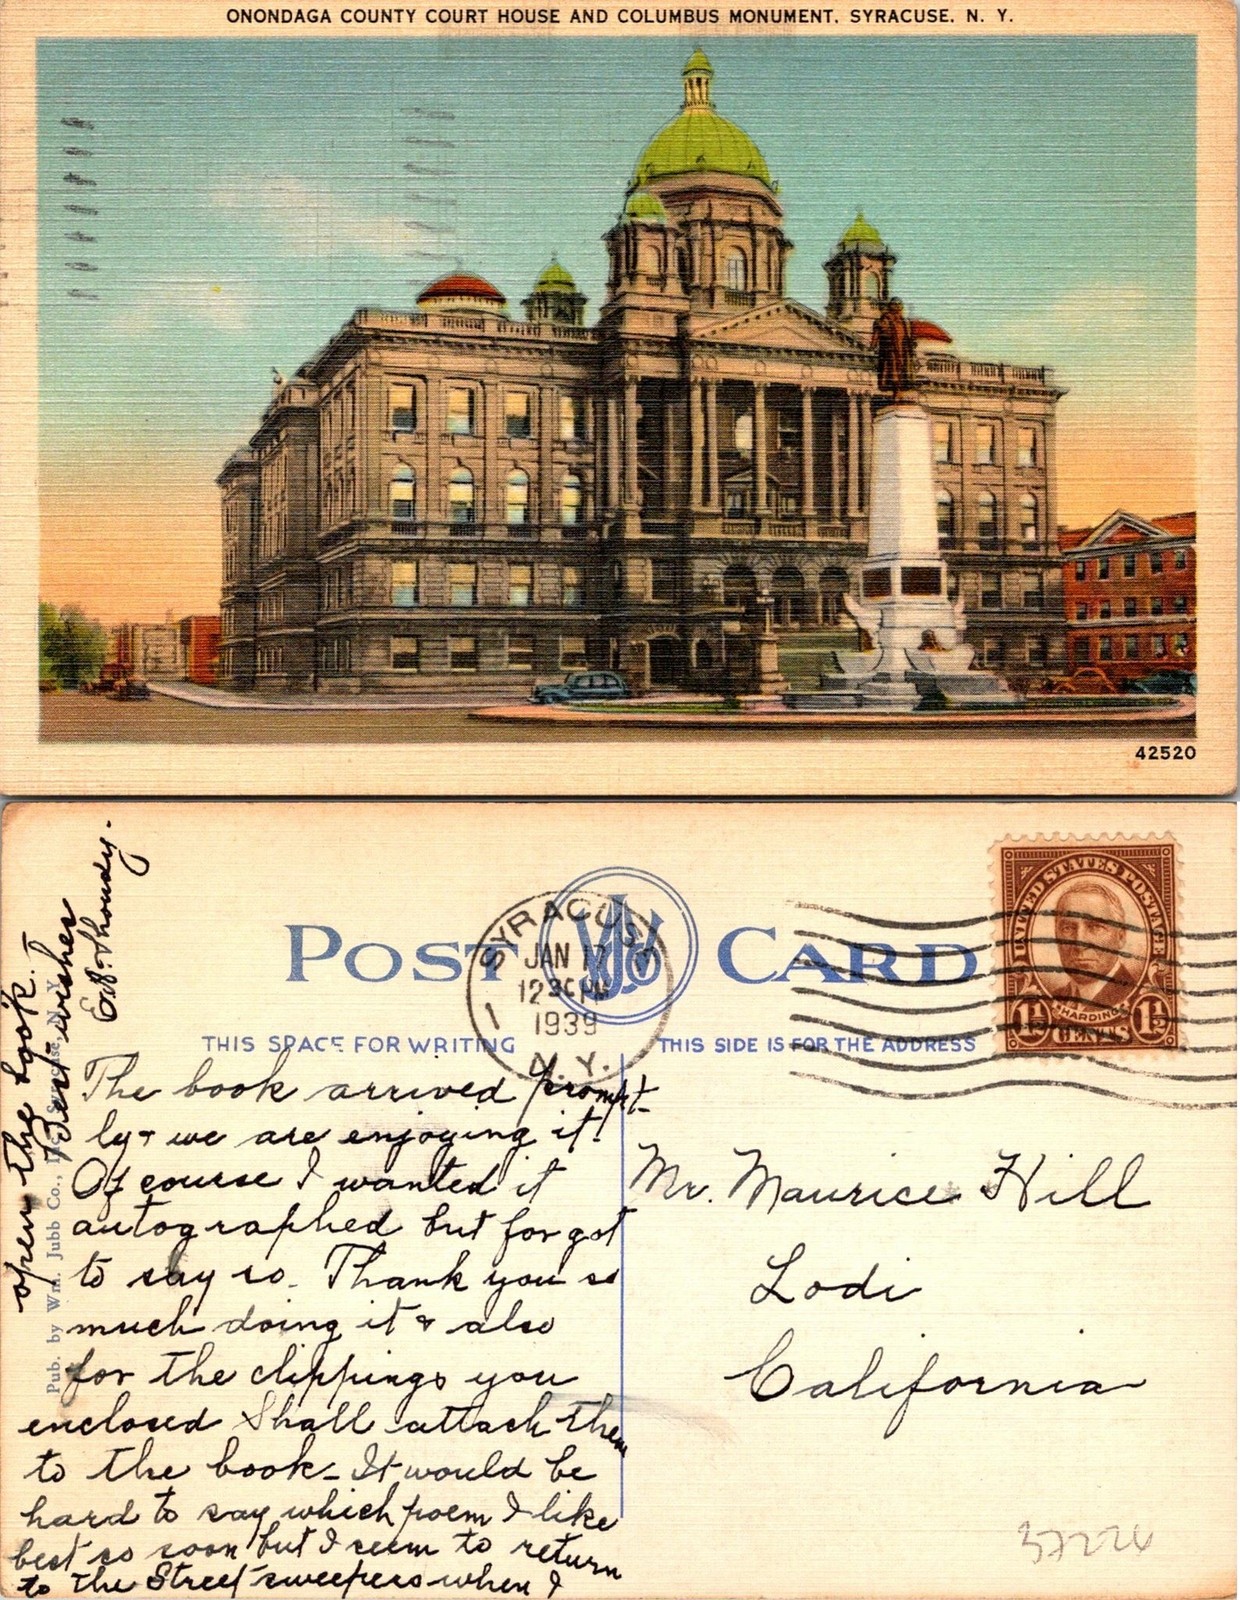 ONONDAGA COUNTY COURT HOUSE AND COLUMBUS MONUMENT, SYRACUSE, N. Y.
42520
POST CARD
SYRACUSE
JAN 17
12 30 PM
1939
N.Y.
1
UNITED STATES POSTAGE
HARDING
1½ CENTS 1½
THIS SPACE FOR WRITING
THIS SIDE IS FOR THE ADDRESS
The book arrived prompt-
ly & we are enjoying it!
Of course I wanted it
autographed but forgot
to say so. Thank you so
much doing it & also
for the clippings you
enclosed Shall attach them
to the book - It would be
hard to say which poem I like
best so soon but I seem to return
to the Street sweepers when I
open the book. -
Best wishes
Mr. Maurice Hill
Lodi
California
Pub. by Wm. Jubb Co., Inc., Syracuse, N. Y.